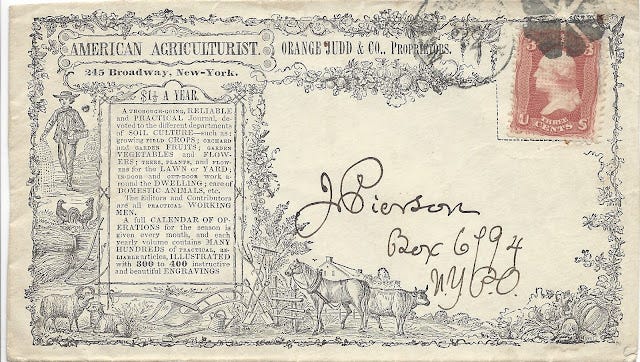 AMERICAN AGRICULTURIST.
ORANGE JUDD & CO., PROPRIETORS.
245 Broadway, New-York.
$1½ A YEAR.
A THOROUGH-GOING, RELIABLE
and PRACTICAL Journal, de-
voted to the different departments
of SOIL CULTURE—such as:
growing FIELD CROPS; ORCHARD
and GARDEN FRUITS; GARDEN
VEGETABLES and FLOW-
ERS; TREES, PLANTS, and FLOW-
ERS for the LAWN or YARD;
IN-DOOR and OUT-DOOR work a-
round the DWELLING; care of
DOMESTIC ANIMALS, etc.
The Editors and Contributors
are all PRACTICAL WORKING
MEN.
A full CALENDAR OF OP-
ERATIONS for the season is
given every month, and each
yearly volume contains MANY
HUNDREDS of PRACTICAL, RE-
LIABLE articles, ILLUSTRATED
with 300 to 400 instructive
and beautiful ENGRAVINGS
3 3
U THREE S
CENTS
J Pierson
Box 6794
N.Y.P.O.